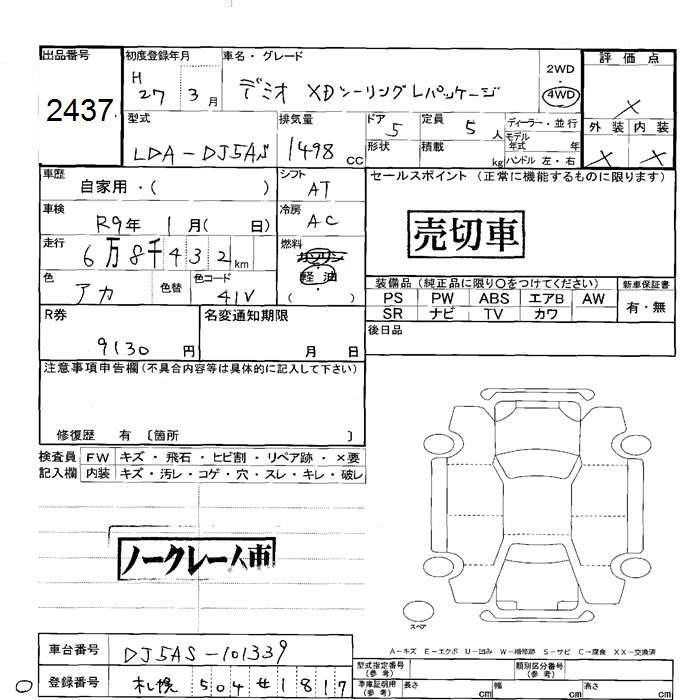 出品番号 初度登録年月 車名・グレード 評価点
2437 H 27 3月 デミオ XDツーリングLパッケージ 2WD ・ 4WD ×
型式 排気量 ドア 定員 ディーラー・並行 外装 内装
LDA-DJ5AS 1498cc 5 5人 モデル年式 年 × ×
形状 積載 kg ハンドル 左・右
車歴 シフト セールスポイント (正常に機能するものに限ります)
自家用・( ) AT
車検 冷房 売切車
R9年 1月( 日) AC
走行 燃料
6万8千432km ガソリン
軽油
色 色替 色コード ( ) 装備品 (純正品に限り〇をつけてください) 新車保証書
アカ 41V PS PW ABS エアB AW 有・無
SR ナビ TV カワ
R券 名変通知期限 後日品
9130円 月 日
注意事項申告欄 (不具合内容等は具体的に記入して下さい)
修復歴 有 〔箇所 〕
検査員 FW キズ・飛石・ヒビ割・リペア跡・×要
記入欄 内装 キズ・汚レ・コゲ・穴・スレ・キレ・破レ
ノークレーム車
スペア
A－キズ E－エクボ U－凹み W－補修跡 S－サビ C－腐食 XX－交換済
車台番号 DJ5AS-101339 型式指定番号 (参考) 類別区分番号 (参考)
登録番号 札幌 504 せ 1817 車庫証明用 (参考) 長さ cm 幅 cm 高さ cm